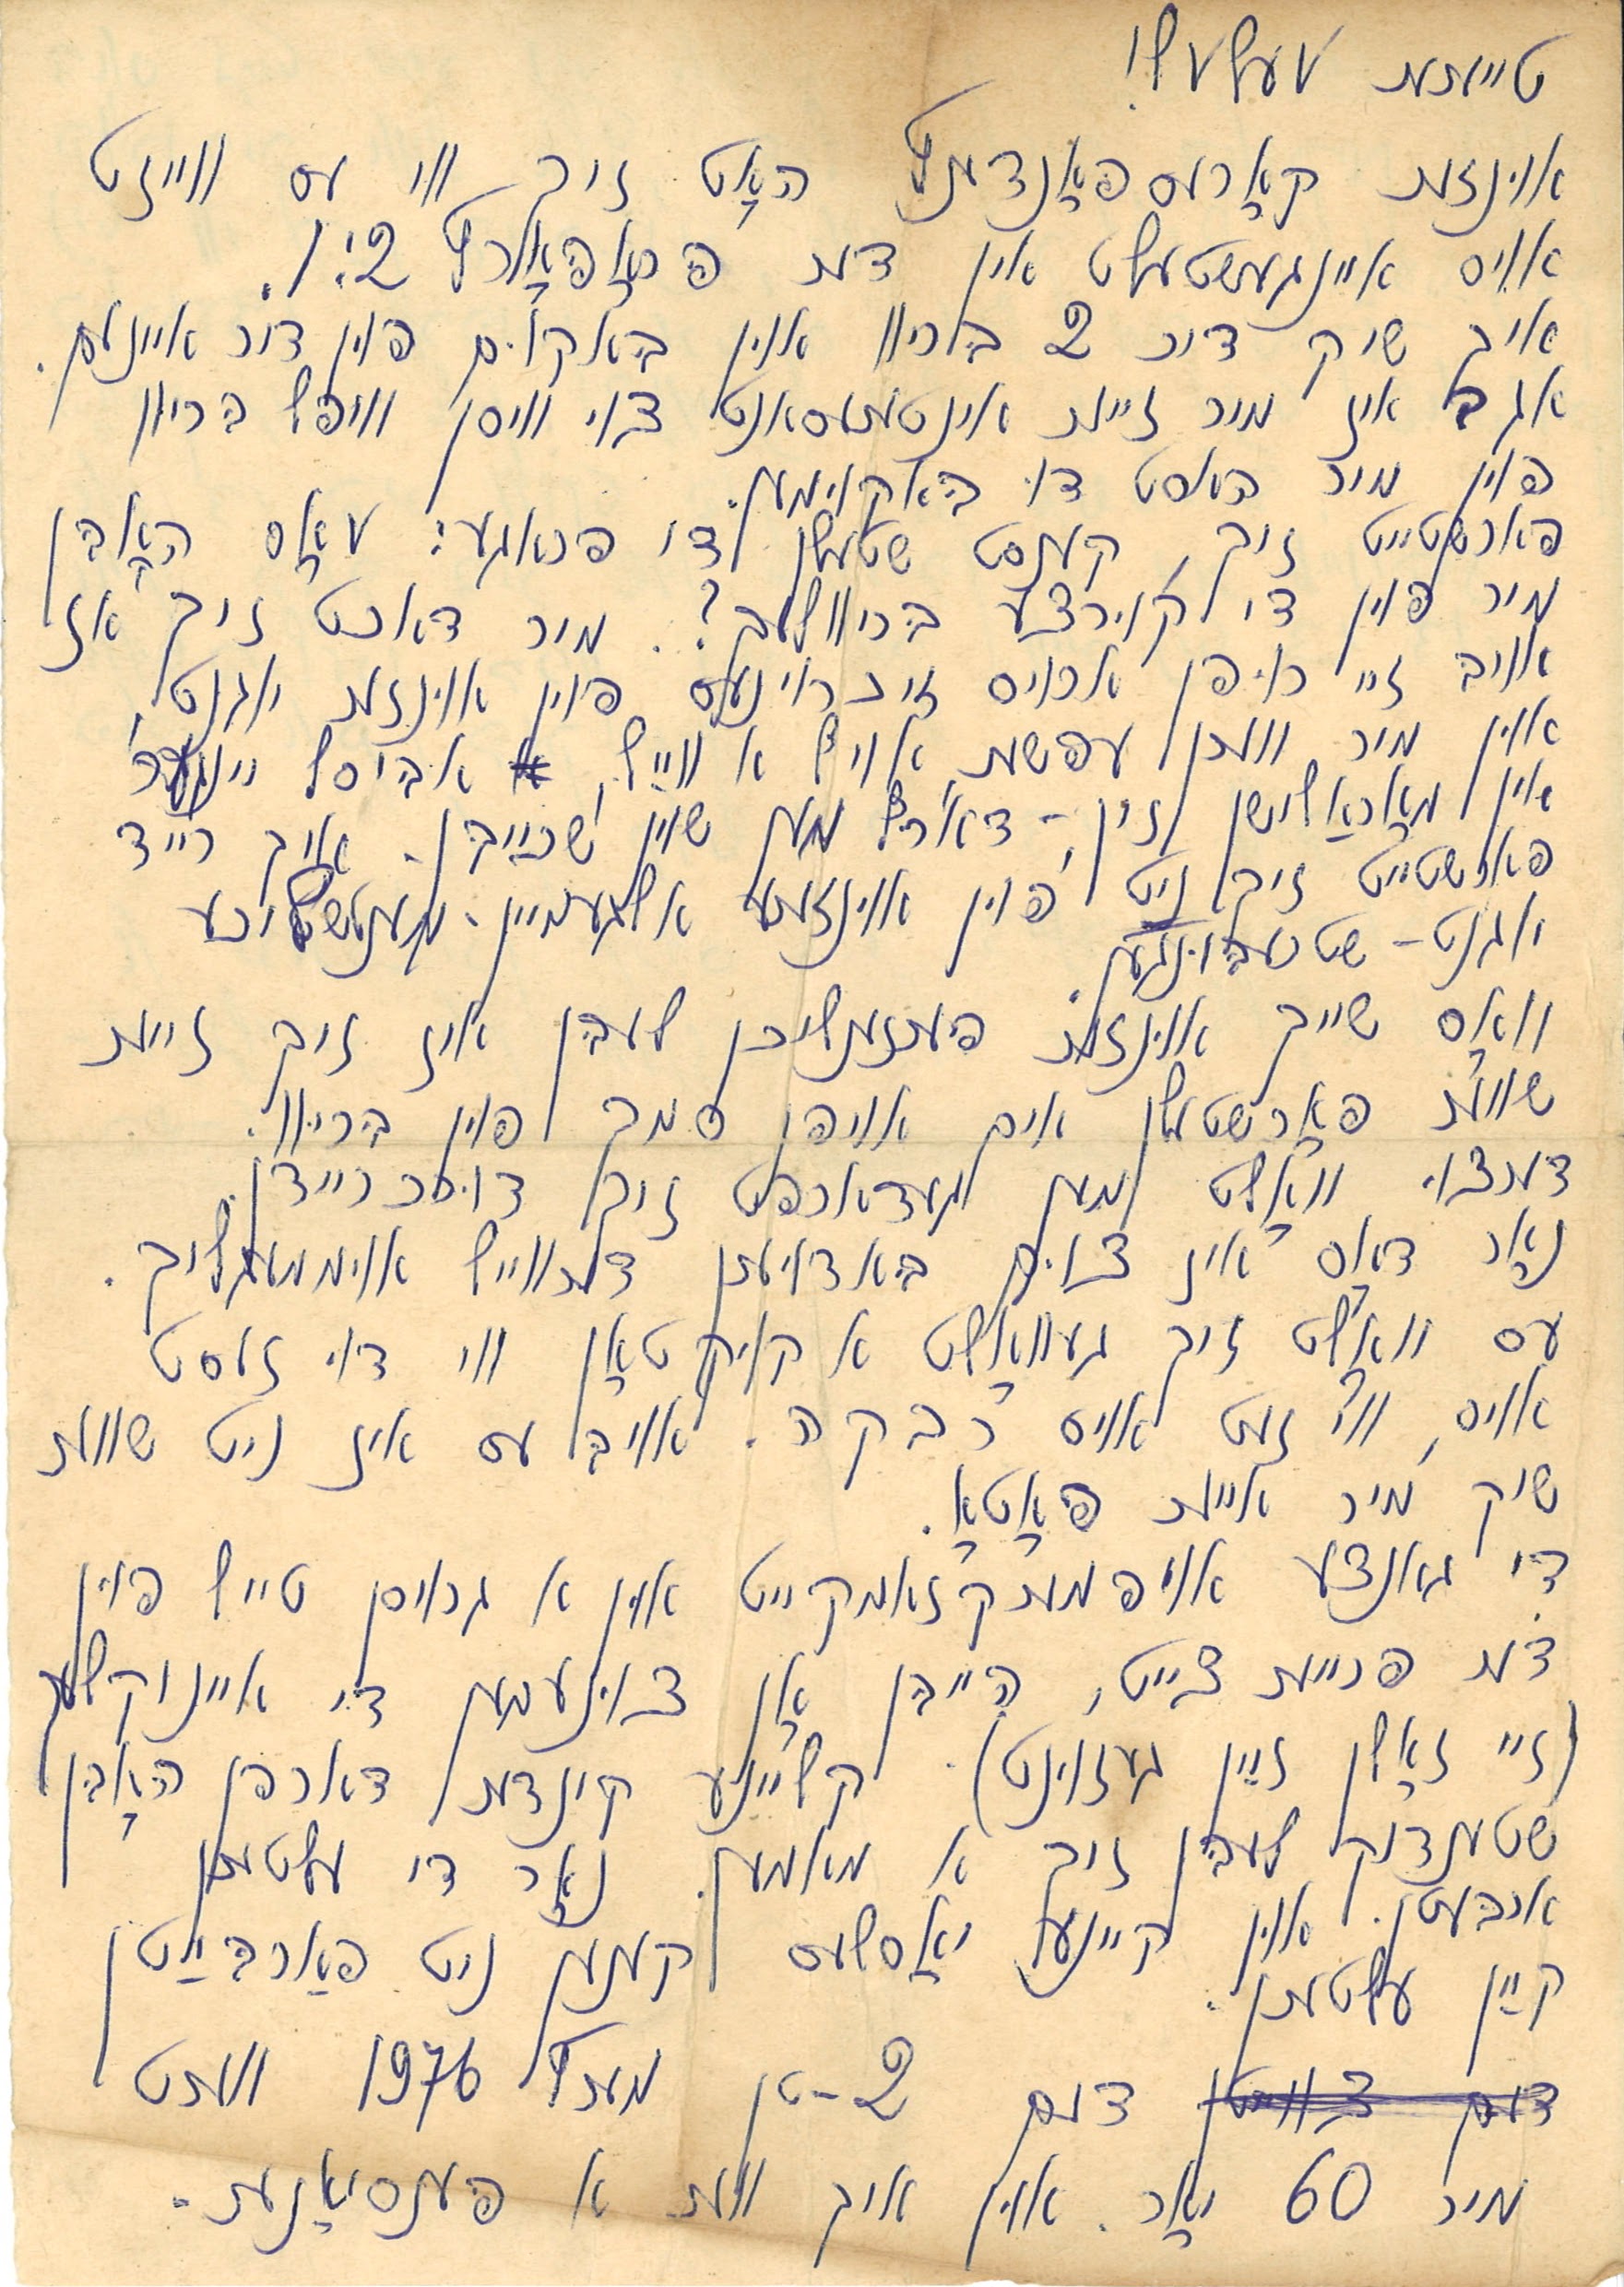 טייערער וועלוול!
אונזער קארעספאָנדענץ האָט זיך ווי עס ווייזט
אויס איינגעשטעלט אין דער פּראָפּאָרץ 2:1.
איך שיק דיר 2 בריוו און באַקום פון דיר איינעם.
אגב איז מיר זייער אינטערעסאנט צו וויסן וויפל בריוו
פון מיר האסט דו באקומען.
פארשטייט זיך, קענסט שטעלן די פראגע: וואָס האָבן
מיר פון די קורצע בריוולעך? מיר דאכט זיך אז
אויב זיי רופן ארויס זכרונעס פון אונזער יוגנט,
און מיר ווערן עפשער אויף א ווײַל, אביסל יינגער
אין מאָראַלישן זין – דארף מען שוין שרײַבן. איך רייד
פארשטייט זיך ניט פון אונזערע אלגעמיין-מענטשליכע
יוגנט-שטרעבונגען.
וואָס שייך אונזער פערזענליכן לעבן איז זיך זייער
שווער פאָרשטעלן אים אויפן סמך פון בריוו.
דערצו וואָלט מען געדארפט זיך דורכריידן.
נאָר דאָס איז צום באדויערן דערווייל אוממעגליך.
עס וואָלט זיך געוואָלט א קוק טאָן ווי דו זעסט
אויס, ווי זעט אויס רבקה. אויב עס איז ניט שווער
שיק מיר אייער פאָטאָ.
די גאנצע אויפמערקזאמקייט און א גרויסן טייל פון
דער פרייער צייט, הייבן אָן צונעמען די אייניקלעך
(זיי זאָלן זײַן געזונט). קליינע קינדער דארפן האָבן
שטענדיק לעבן זיך א מאמען. נאָר די עלטערן
ארבעטן. און קיינע יאָסלעס קענען ניט פאַרבײַטן
קײַן עלטערן.
דעם 2-טן מערץ 1976 ווערט
מיר 60 יאָר. און איך ווער א פּענסיאָנער.